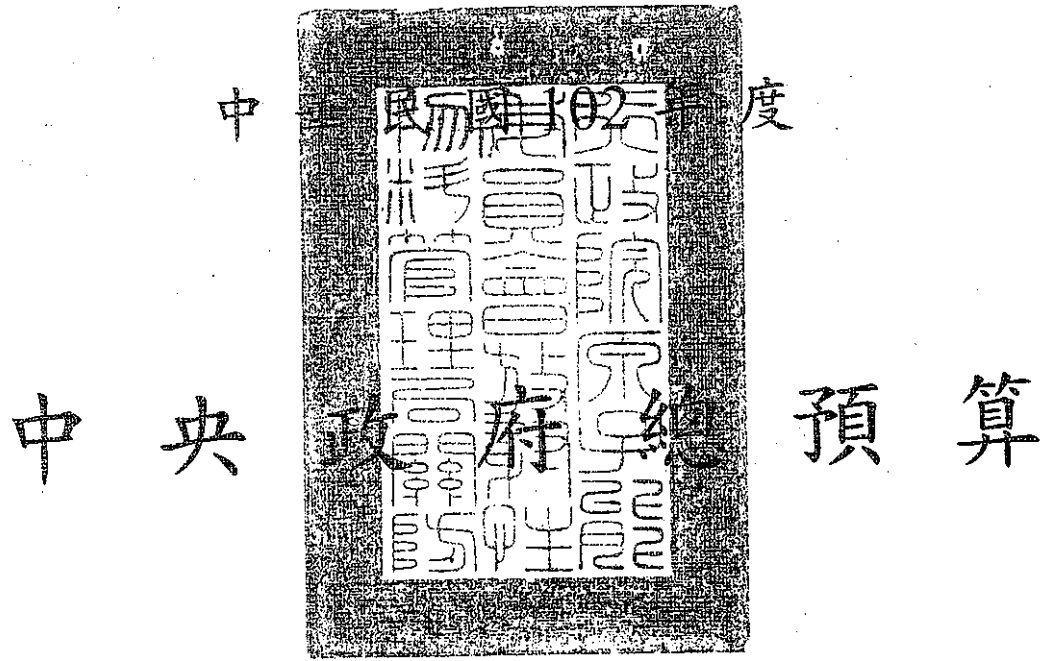 中華民國102年度
中央政府總預算
行政院原子能
委員會放射性
物料管理局關防